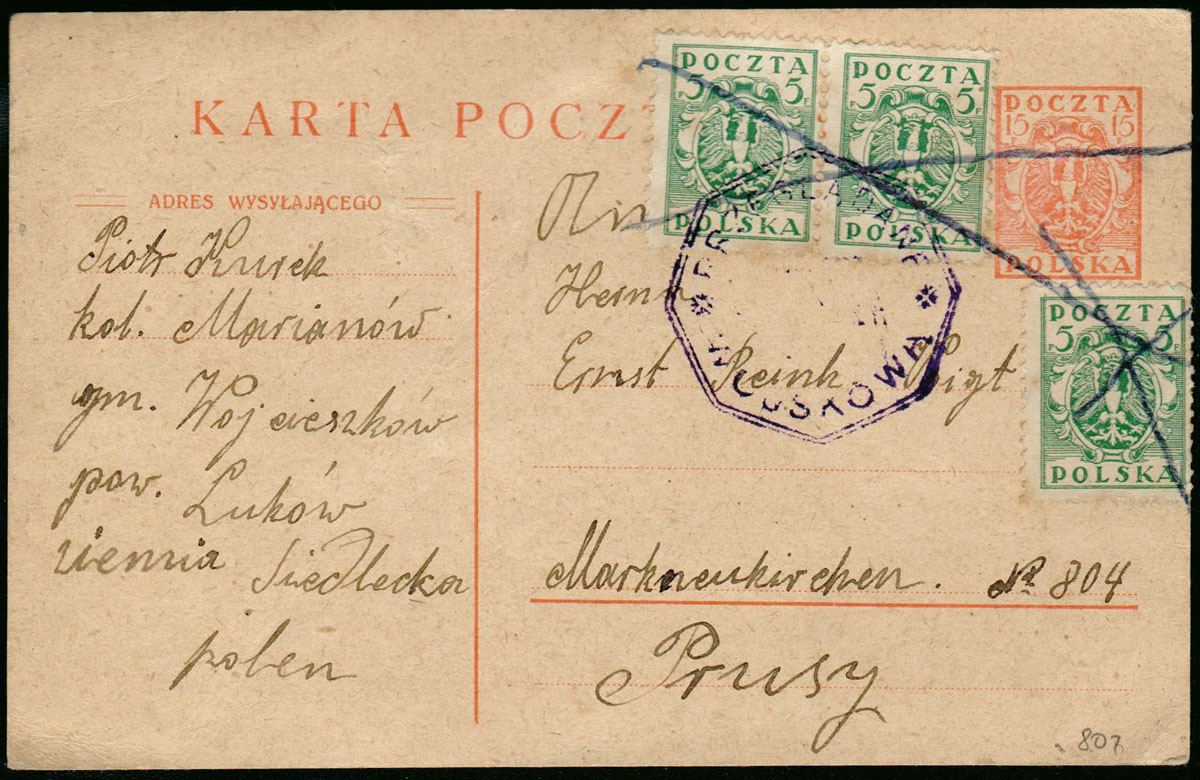 KARTA POCZ
POCZTA
5 F 5 F
POLSKA
POCZTA
5 F 5 F
POLSKA
POCZTA
15 15
POLSKA
ADRES WYSYŁAJĄCEGO
Piotr Kurek
kol. Marianów
gm. Wojcieszków
pow. Luków
ziemia Siedlecka
polen
Herrn
Ernst Reinh Voigt
POCZTA
5 F 5 F
POLSKA
Markneukirchen. No 804
Prusy
807